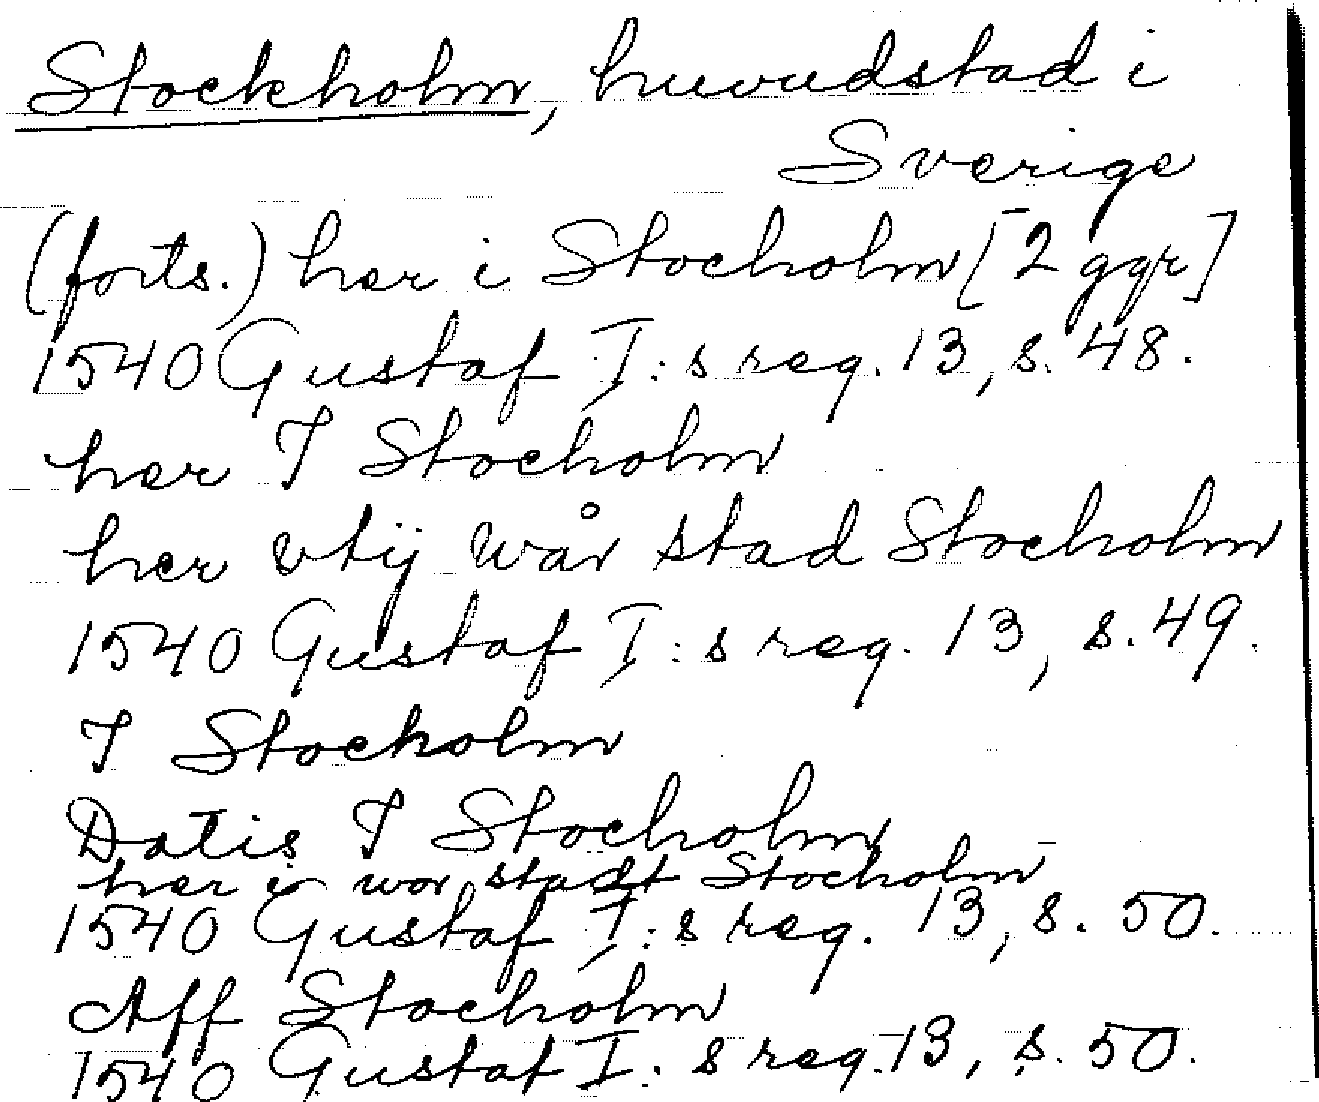 Stockholm, huvudstad i
Sverige
(forts.) her i Stocholm [2 ggr]
1540 Gustaf I:s reg. 13, s. 48.
her I Stocholm
her vtij wår stad Stocholm
1540 Gustaf I:s reg. 13, s. 49.
I Stocholm
Datis I Stocholm
her i wor stadt Stocholm
1540 Gustaf I:s reg. 13, s. 50.
Aff Stocholm
1540 Gustaf I:s reg. 13, s. 50.